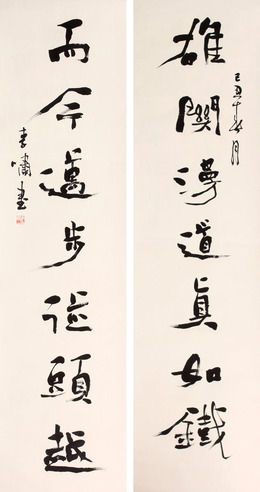 雄關漫道真如鐵
己丑年春月
而今邁步從頭越
李嘯書